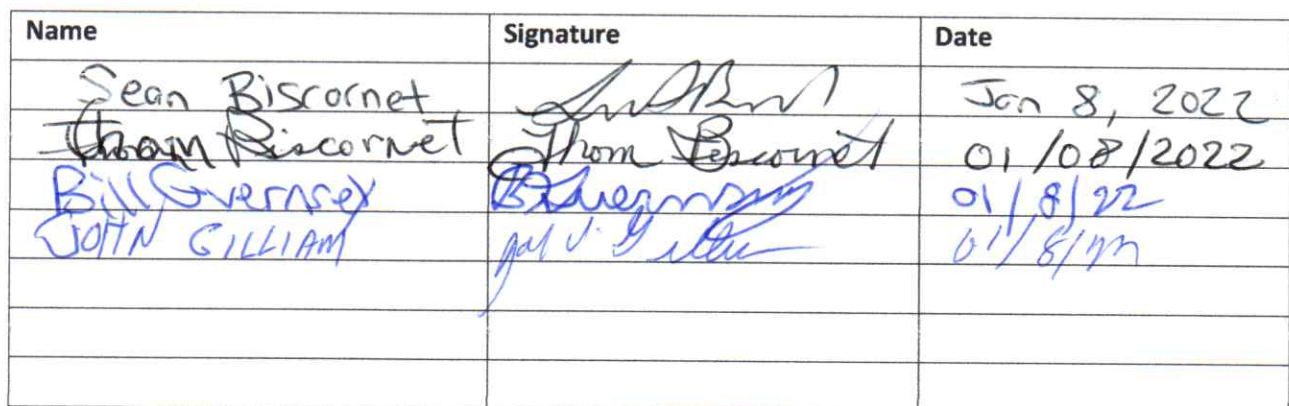 Name Signature Date
Sean Biscornet Jan 8, 2022
Thom Biscornet Thom Biscornet 01/08/2022
Bill Guernsey BGuernsey 01/8/22
JOHN GILLIAM 01/8/22